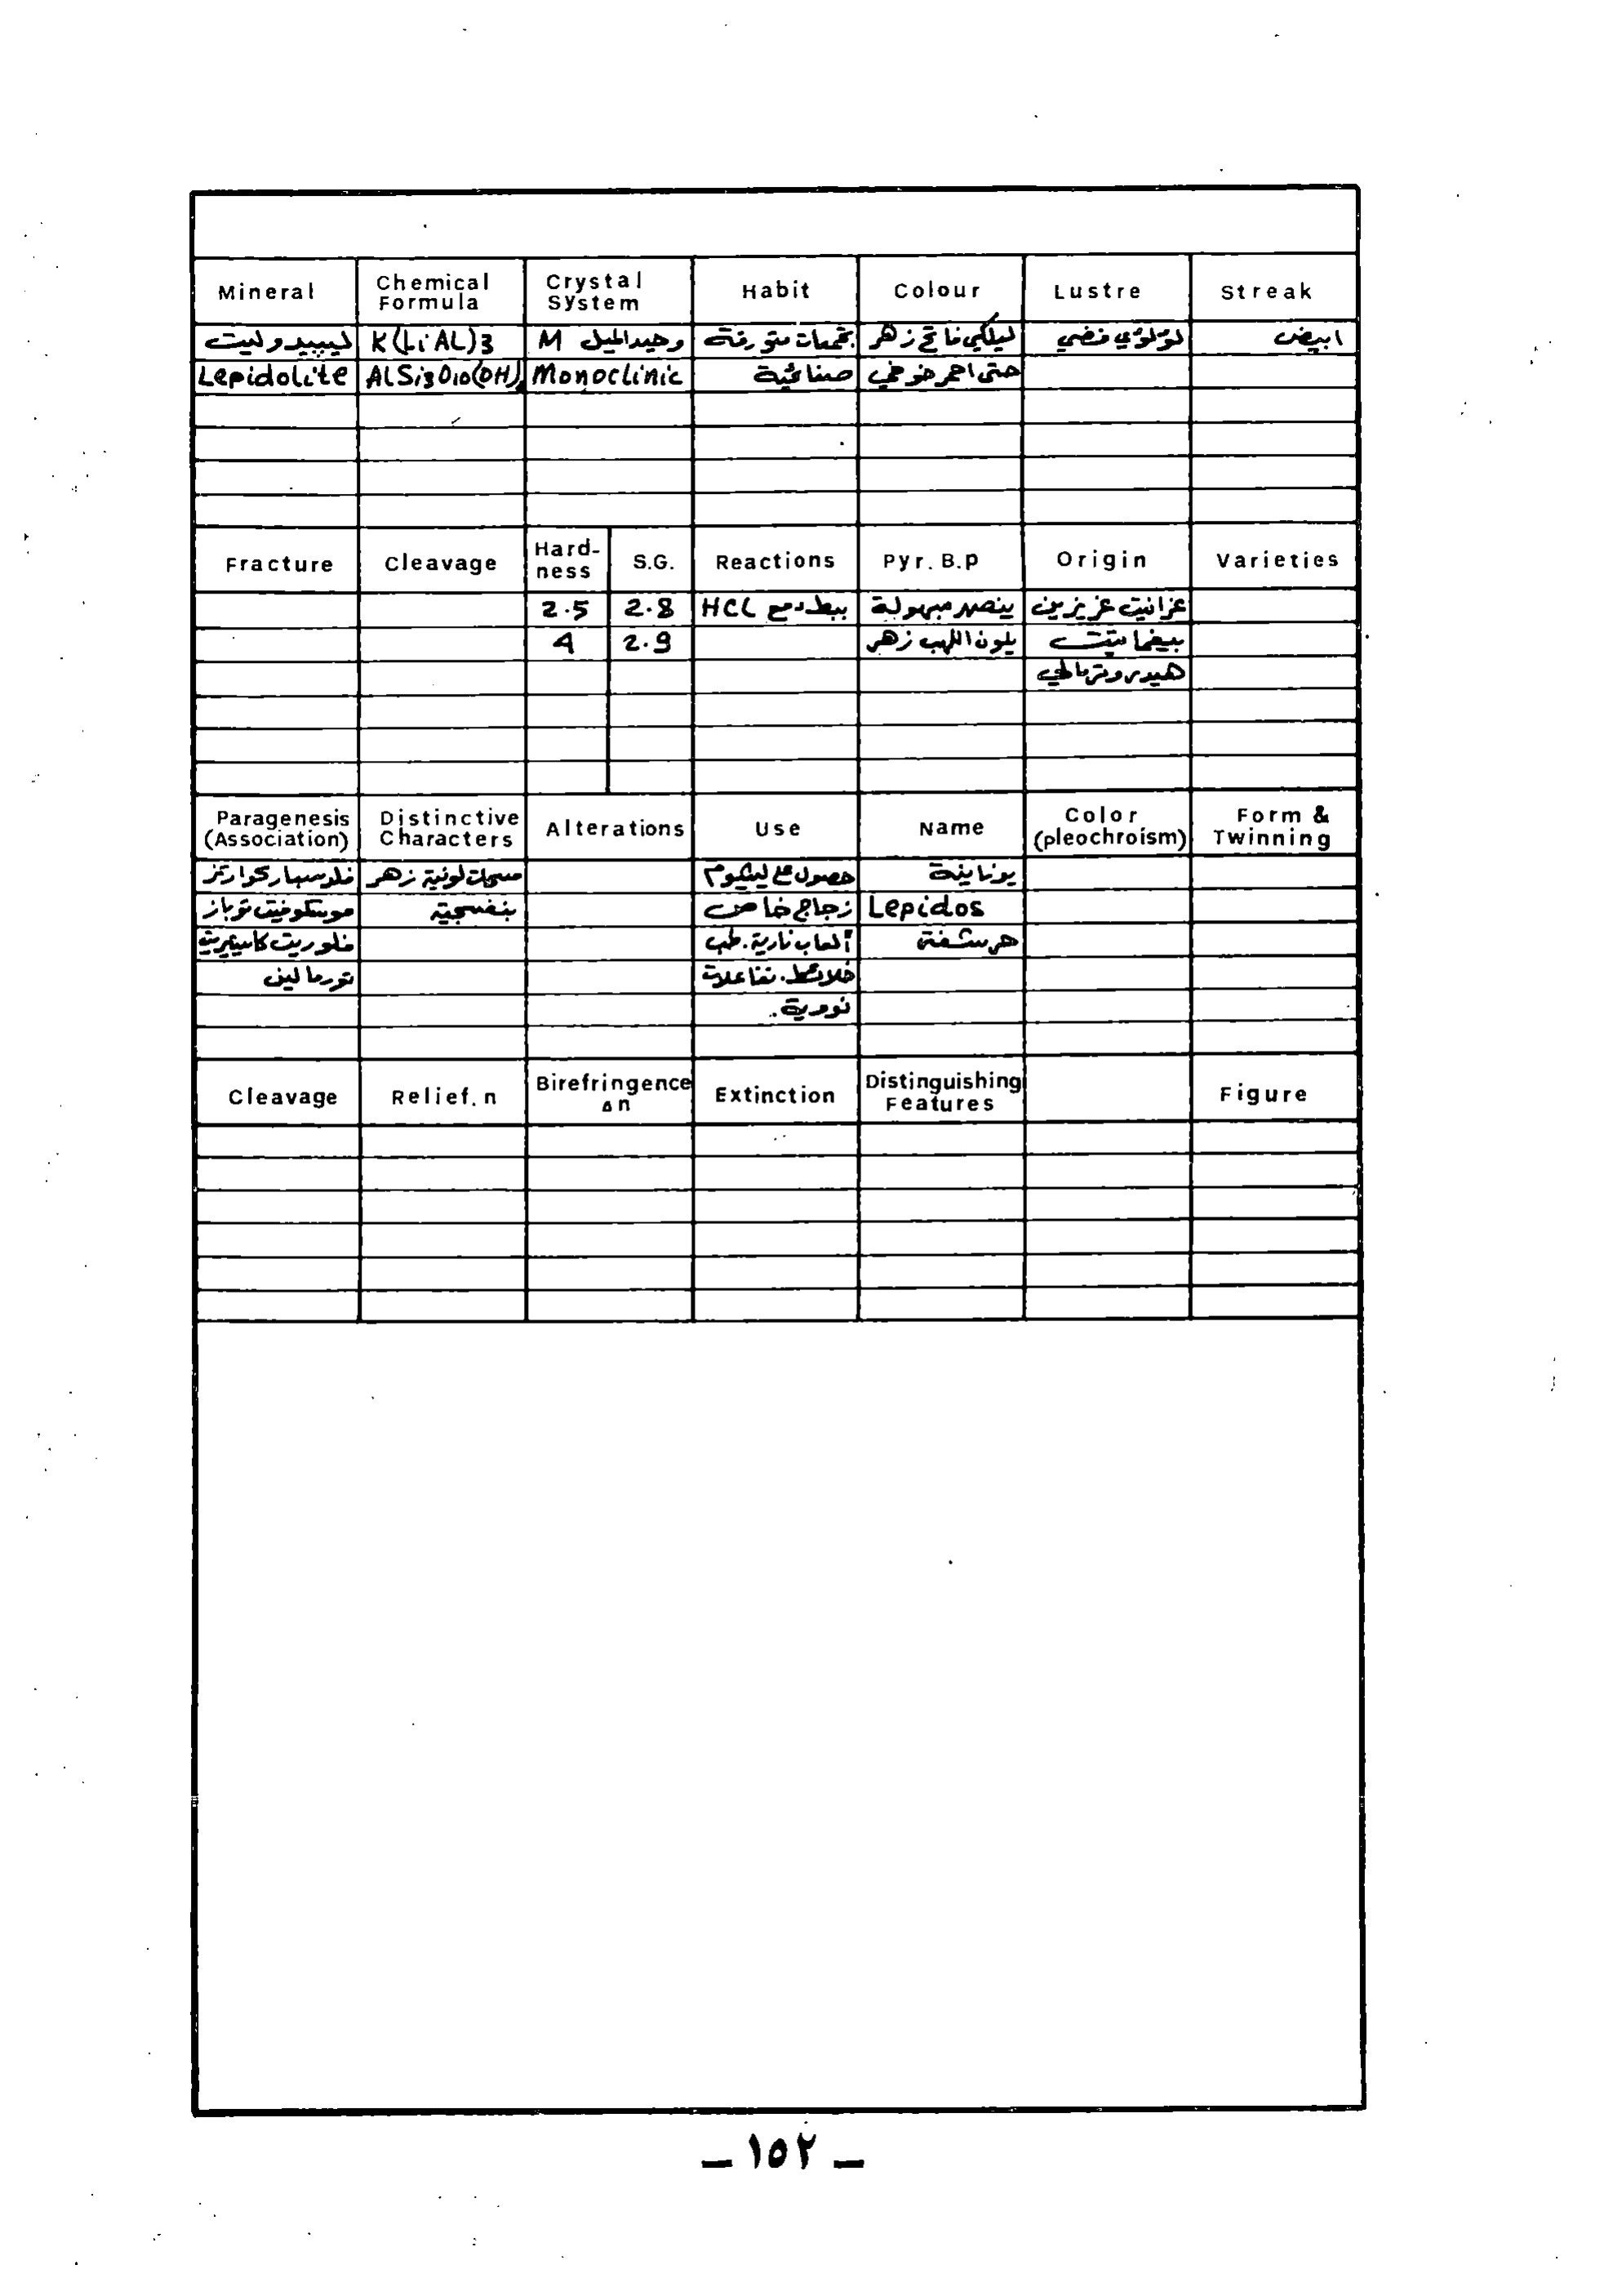 Mineral | Chemical Formula | Crystal System | Habit | Colour | Lustre | Streak
ليبيدوليت | K(Li AL)3 | وحيد الميل M | تجمعات متورقة | ليلكي فاتح زهر | لؤلؤي فضي | ابيض
Lepidolite | ALSi3O10(OH) | Monoclinic | صفائحية | حتى احمر خوخي
Fracture | Cleavage | Hard-ness | S.G. | Reactions | Pyr. B.p | Origin | Varieties
2.5 | 2.8 | ببطء مع HCL | ينصهر بسهولة | غرانيت غريزين
4 | 2.9 | يلون اللهب زهر | بيغماتيت
هيدروترمالي
Paragenesis (Association) | Distinctive Characters | Alterations | Use | Name | Color (pleochroism) | Form & Twinning
فلدسبار كوارتز | لونية زهر | حصول ع ليتيوم | يونانية
موسكوفيت توباز | بنفسجية | زجاج خاص | Lepidos
فلوريت كاسيتيريت | ألعاب نارية. طب | حرشفة
تورمالين | خلائط. تفاعلات
نووية.
Cleavage | Relief. n | Birefringence Δn | Extinction | Distinguishing Features | Figure
– ١٥٢ –